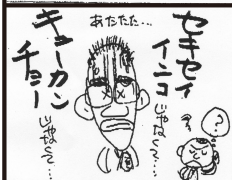 セキセイ
インコ
じゃなくて…
あたたた…
キューカン
チョー
じゃなくて…
?